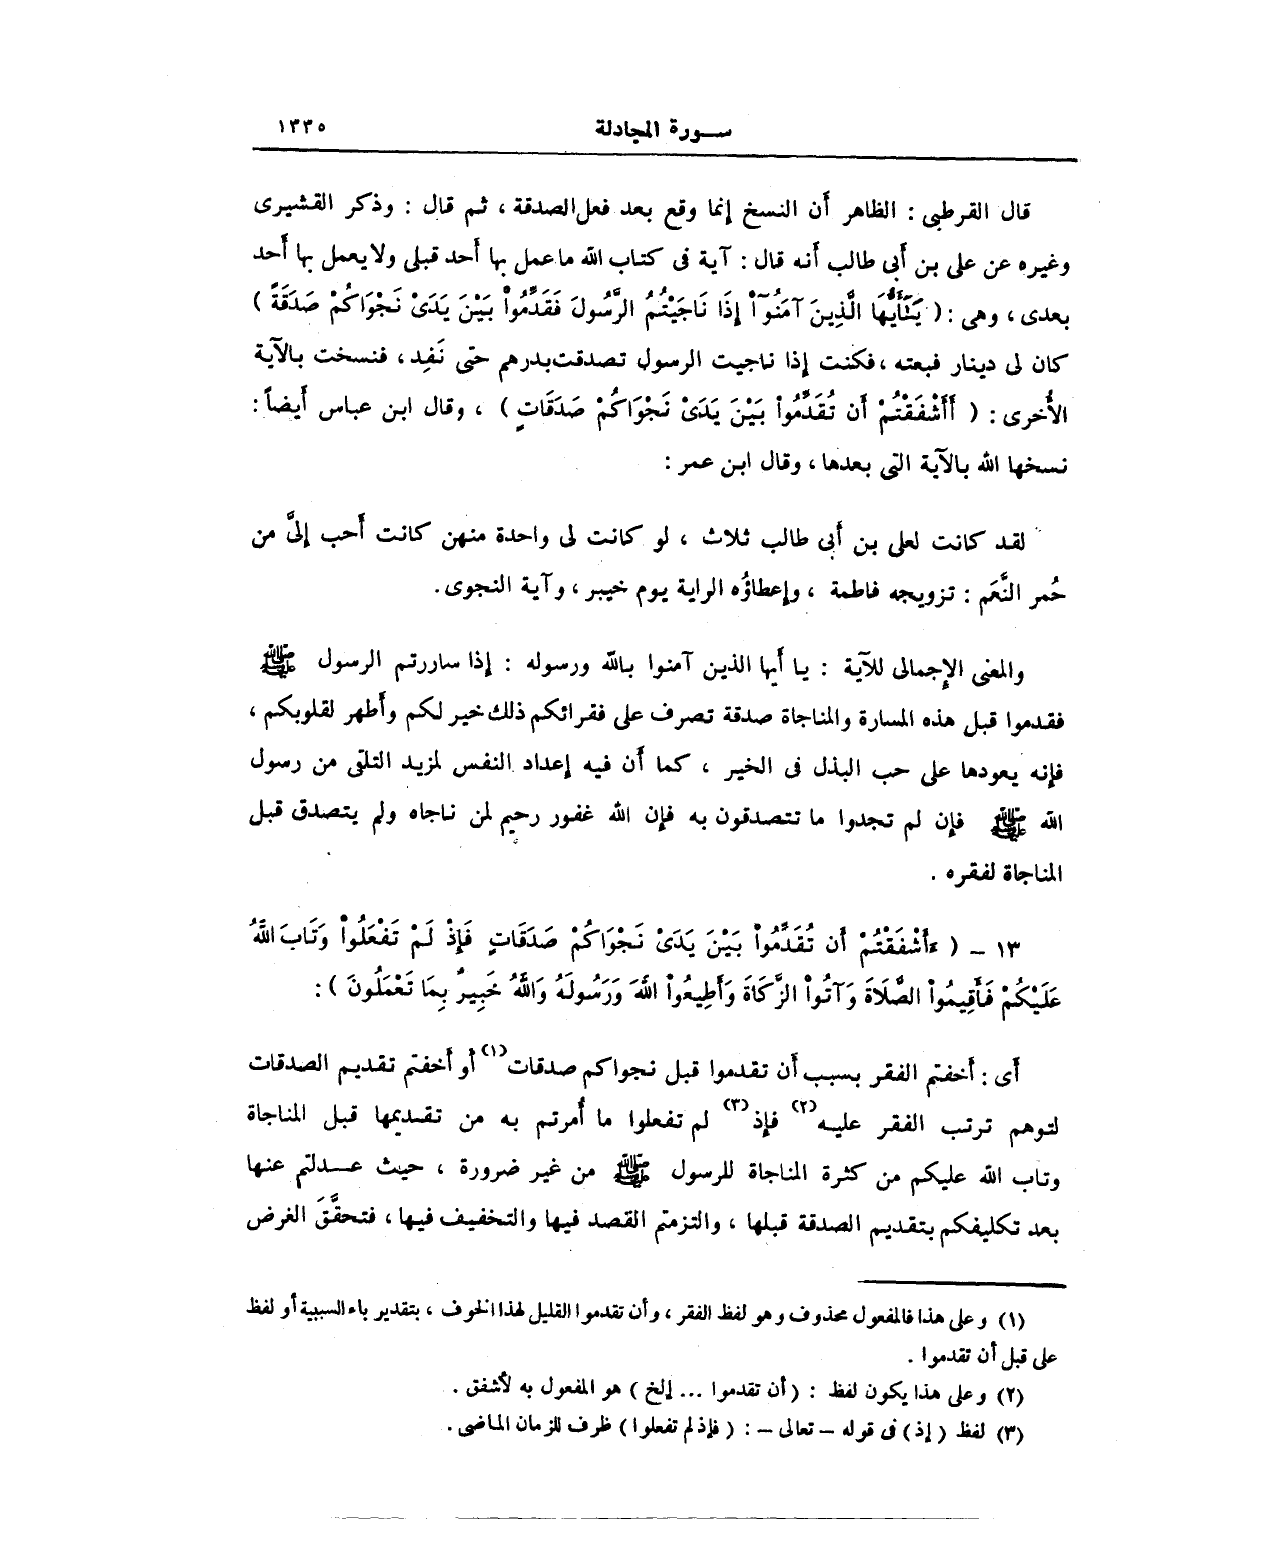 سورة المجادلة ١٣٣٥
قال القرطبى : الظاهر أن النسخ إنما وقع بعد فعل الصدقة ، ثم قال : وذكر القشيرى
وغيره عن على بن أبى طالب أنه قال : آية فى كتاب الله ما عمل بها أحد قبلى ولا يعمل بها أحد
بعدى ، وهى : ( يَـٰٓأَيُّهَا الَّذِينَ آمَنُوٓاْ إِذَا نَاجَيْتُمُ الرَّسُولَ فَقَدِّمُواْ بَيْنَ يَدَىْ نَجْوَاكُمْ صَدَقَةً )
كان لى دينار فبعته ، فكنت إذا ناجيت الرسول تصدقت بدرهم حتى نَفِد ، فنسخت بالآية
الأُخرى : ( أَأَشْفَقْتُمْ أَن تُقَدِّمُواْ بَيْنَ يَدَىْ نَجْوَاكُمْ صَدَقَاتٍ ) ، وقال ابن عباس أيضاً :
نسخها الله بالآية التى بعدها ، وقال ابن عمر :
لقد كانت لعلى بن أبى طالب ثلاث ، لو كانت لى واحدة منهن كانت أحب إلىَّ من
حُمر النَّعَم : تزويجه فاطمة ، وإعطاؤُه الراية يوم خيبر ، وآية النجوى .
والمعنى الإجمالى للآية : يا أيها الذين آمنوا بالله ورسوله : إذا ساررتم الرسول ﷺ
فقدموا قبل هذه المسارة والمناجاة صدقة تصرف على فقرائكم ذلك خير لكم وأطهر لقلوبكم ،
فإنه يعودها على حب البذل فى الخير ، كما أن فيه إعداد النفس لمزيد التلقى من رسول
الله ﷺ فإن لم تجدوا ما تتصدقون به فإن الله غفور رحيم لمن ناجاه ولم يتصدق قبل
المناجاة لفقره .
١٣ - ( ءَأَشْفَقْتُمْ أَن تُقَدِّمُواْ بَيْنَ يَدَىْ نَجْوَاكُمْ صَدَقَاتٍ فَإِذْ لَمْ تَفْعَلُواْ وَتَابَ اللَّهُ
عَلَيْكُمْ فَأَقِيمُواْ الصَّلَاةَ وَآتُواْ الزَّكَاةَ وَأَطِيعُواْ اللهَ وَرَسُولَهُ وَاللَّهُ خَبِيرٌ بِمَا تَعْمَلُونَ ) :
أى : أخفتم الفقر بسبب أن تقدموا قبل نجواكم صدقات (١) أو أخفتم تقديم الصدقات
لتوهم ترتب الفقر عليه (٢) فإذ (٣) لم تفعلوا ما أُمرتم به من تقديمها قبل المناجاة
وتاب الله عليكم من كثرة المناجاة للرسول ﷺ من غير ضرورة ، حيث عدلتم عنها
بعد تكليفكم بتقديم الصدقة قبلها ، والتزمتم القصد فيها والتخفيف فيها ، فتحقَّقَ الغرض
(١) وعلى هذا فالمفعول محذوف وهو لفظ الفقر ، وأن تقدموا القليل لهذا الخوف ، بتقدير باء السببية أو لفظ
على قبل أن تقدموا .
(٢) وعلى هذا يكون لفظ : ( أن تقدموا ... إلخ ) هو المفعول به لأشفق .
(٣) لفظ ( إذ ) فى قوله - تعالى - : ( فإذ لم تفعلوا ) ظرف للزمان الماضى .